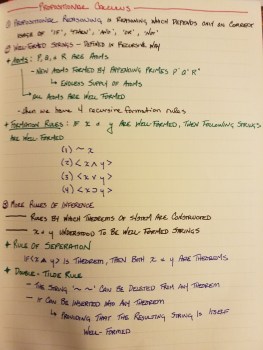 PROPOSITIONAL CALCULUS
① PROPOSITIONAL REASONING IS REASONING WHICH DEPENDS ONLY ON CORRECT
USAGE OF "IF", "THEN", "AND", "OR", "NOT"
② WELL-FORMED STRINGS - DEFINED IN RECURSIVE WAY
+ ATOMS: P, Q, & R ARE ATOMS
- NEW ATOMS FORMED BY APPENDING PRIMES P' Q' R'
↳ ENDLESS SUPPLY OF ATOMS
↳ ALL ATOMS ARE WELL FORMED
- then we have 4 recursive formation rules
+ FORMATION RULES: IF x & y ARE WELL-FORMED, THEN FOLLOWING STRINGS
ARE WELL FORMED
(1) ~ x
(2) < x ∧ y >
(3) < x ∨ y >
(4) < x ⊃ y >
③ MORE RULES OF INFERENCE
— RULES BY WHICH THEOREMS OF SYSTEM ARE CONSTRUCTED
— x & y UNDERSTOOD TO BE WELL-FORMED STRINGS
+ RULE OF SEPERATION
IF < x ∧ y > IS THEOREM, THEN BOTH x & y ARE THEOREMS
+ DOUBLE-TILDE RULE
- THE STRING '~ ~' CAN BE DELETED FROM ANY THEOREM
- IT CAN BE INSERTED INTO ANY THEOREM
↳ PROVIDING THAT THE RESULTING STRING IS ITSELF
WELL-FORMED